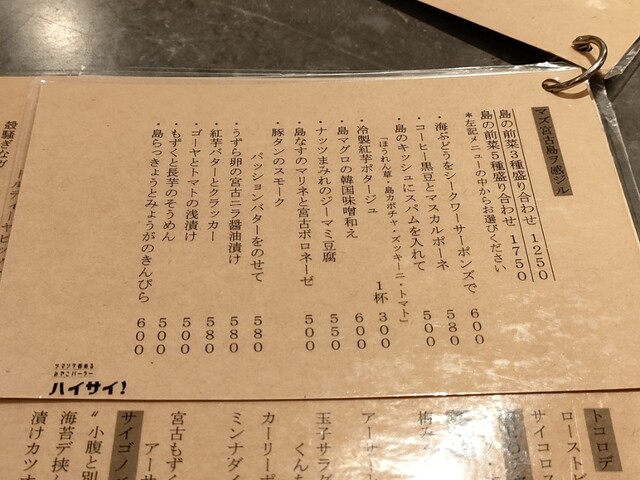 マズ宮古島ヲ感ジル
島の前菜3種盛り合わせ 1250
島の前菜5種盛り合わせ 1750
*左記メニューの中からお選びください
・海ぶどうをシークワーサーポンズで 600
・コーヒー黒豆とマスカルポーネ 580
・島のキッシュにスパムを入れて 500
「ほうれん草・島カボチャ・ズッキーニ・トマト」
・冷製紅芋ポタージュ 1杯 300
・島マグロの韓国味噌和え 600
・ナッツまみれのジーマミ豆腐 550
・島なすのマリネと宮古ボロネーゼ 500
・豚タンのスモーク
パッションバターをのせて 580
・うずら卵の宮古ニラ醤油漬け 580
・紅芋バターとクラッカー 580
・ゴーヤとトマトの浅漬け 500
・もずくと長芋のそうめん 500
・島らっきょうとみょうがのきんぴら 600
ハイサイ!
殻騒ぎな
トコロデ
ローストビ
サイコロス
アーサ
玉子サラダ
くんち
カーリーポ
ミンナダイ
宮古もずく
アーサ
サイゴノ
"小腹と別
海苔デ挟
漬けカツオ